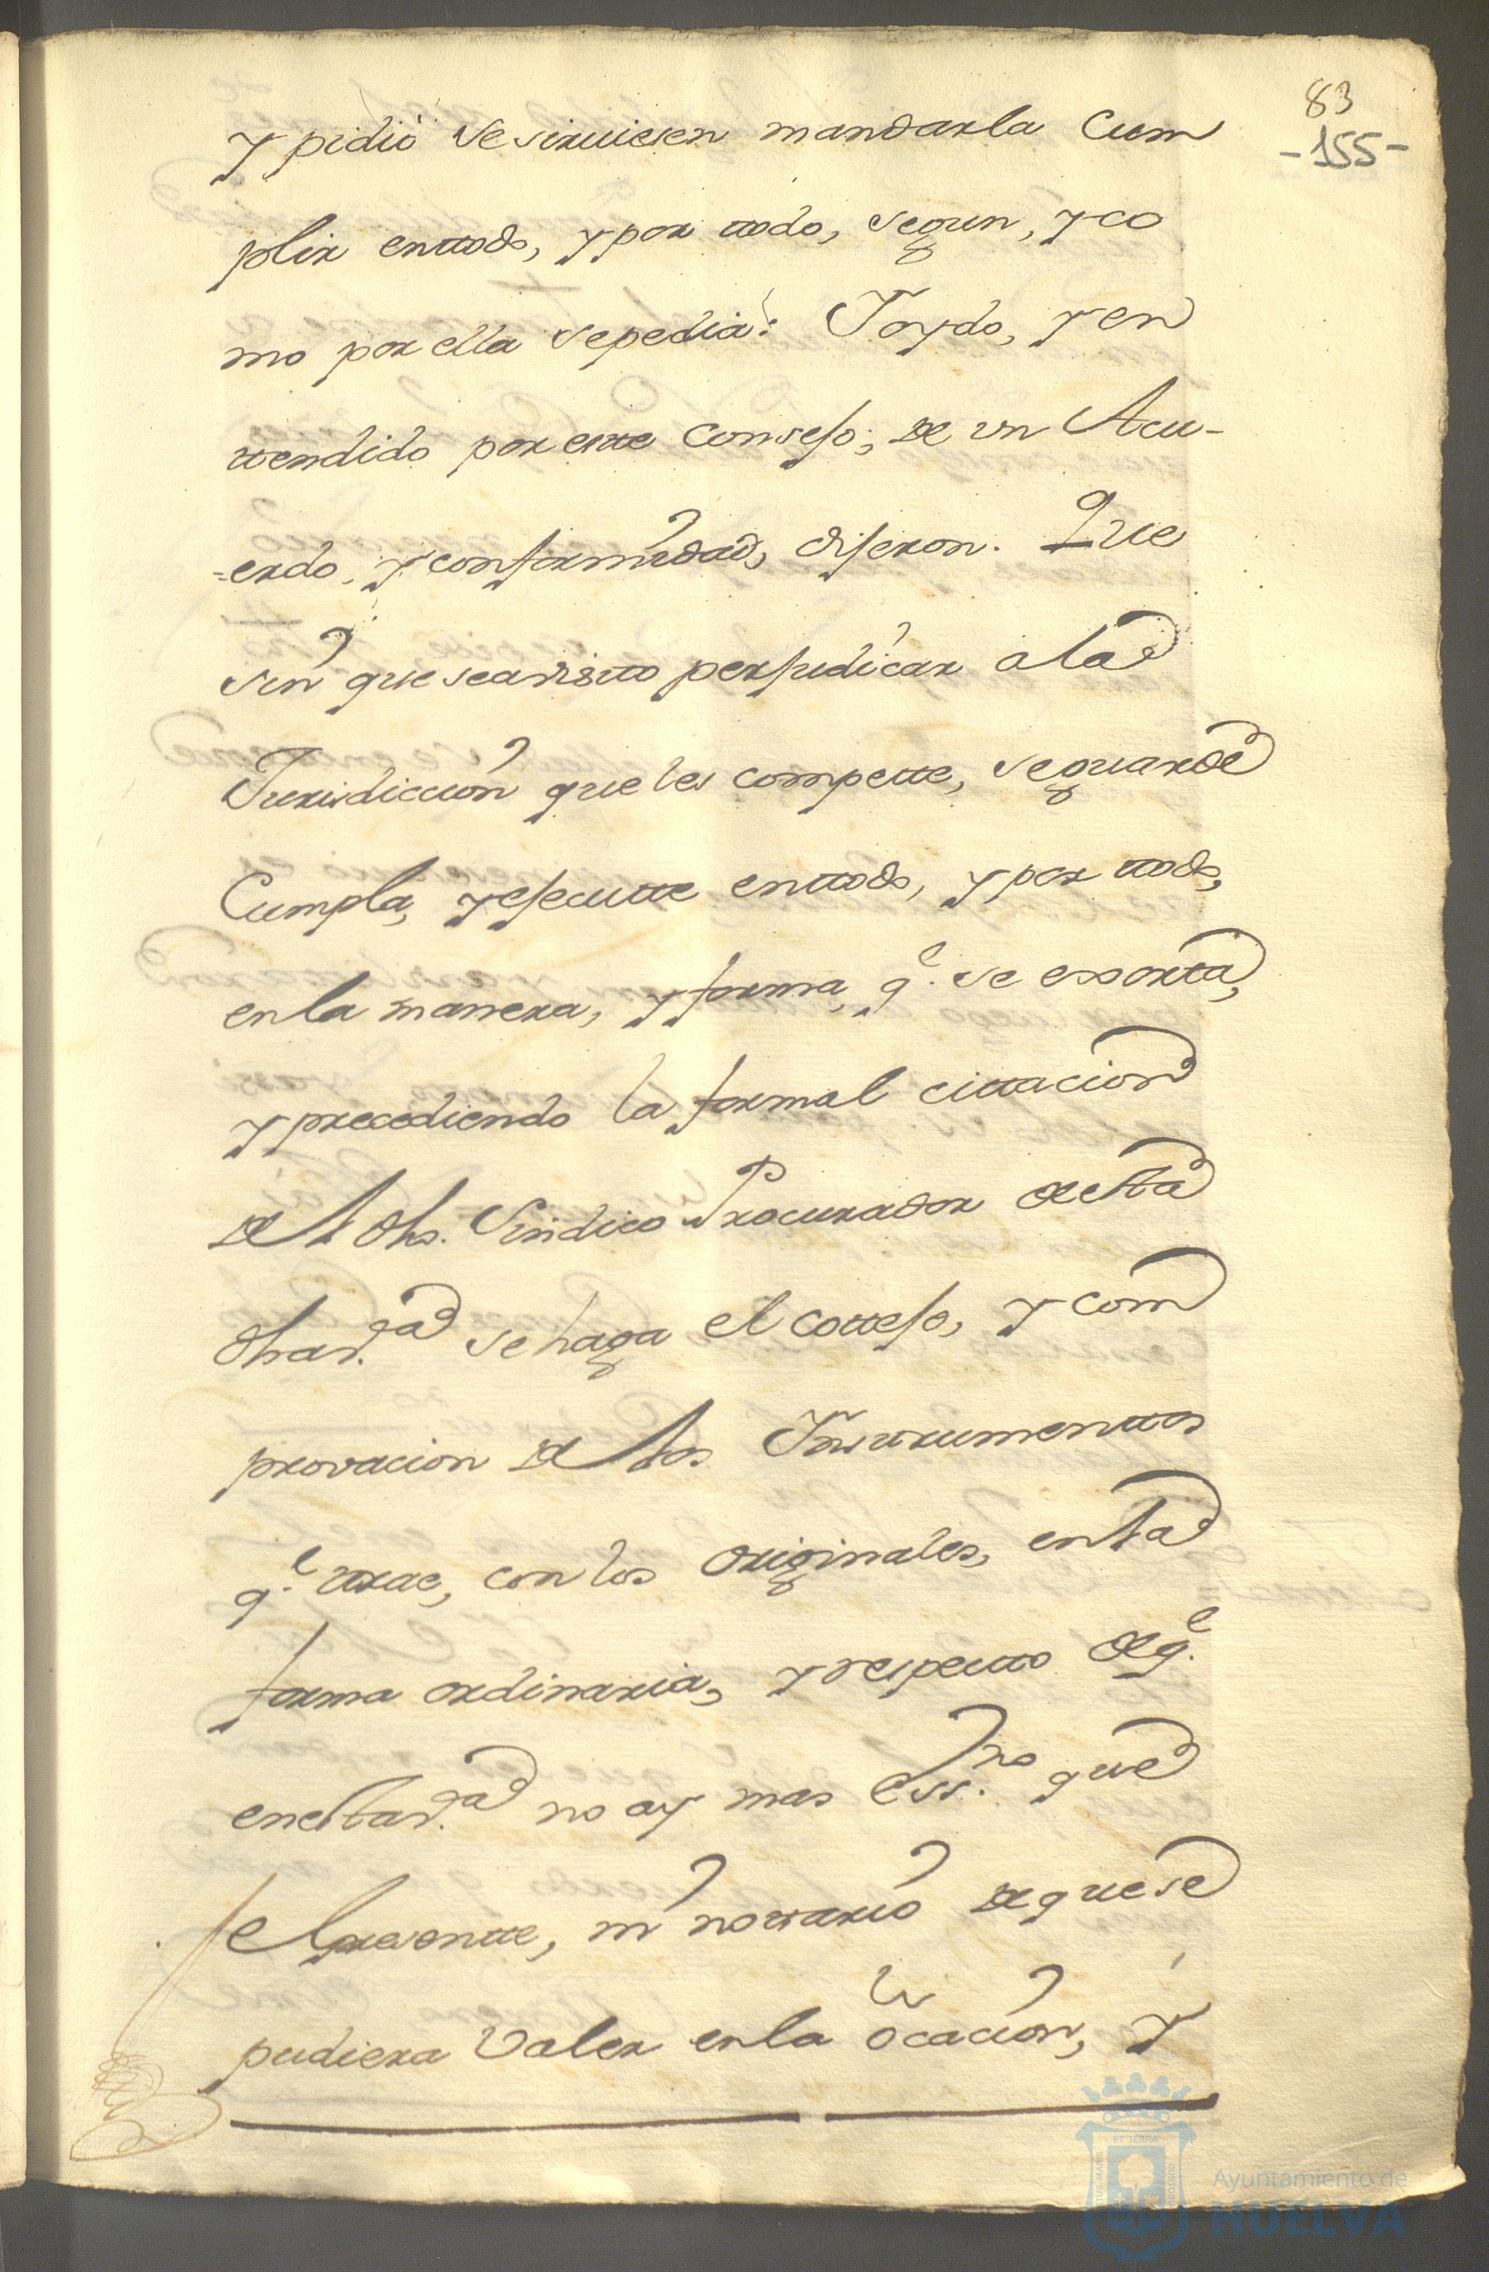 83
-155-
y pidió se siruiesen mandarla Cum
plir enttodo, y por ttodo, segun, y co
mo por ella se pedia: Y oydo, y en
ttendido por estte Consejo, de vn Acu-
=erdo, y conformidad, dijeron. Que
sin que sea visto perjudicar a la
Jurisdiccion que les compette, se guarde
Cumpla, y ejecutte enttodo, y por ttodo,
en la manera, y forma, q.e se exorta,
y precediendo la formal cittacion
del dho. Sindico Procurador de esta
dha v.a se haga el cottejo, y com
provacion de los Instrumenttos
q.e ttrae, con los originales, en la
forma ordinaria, y respectto de q.e
en esta v.a no ay mas Ess.no que
el presentte, ni nottario de que se
pudiera Valer en la ocacion, y
ET TERRA
Ayuntamiento de
HUELVA